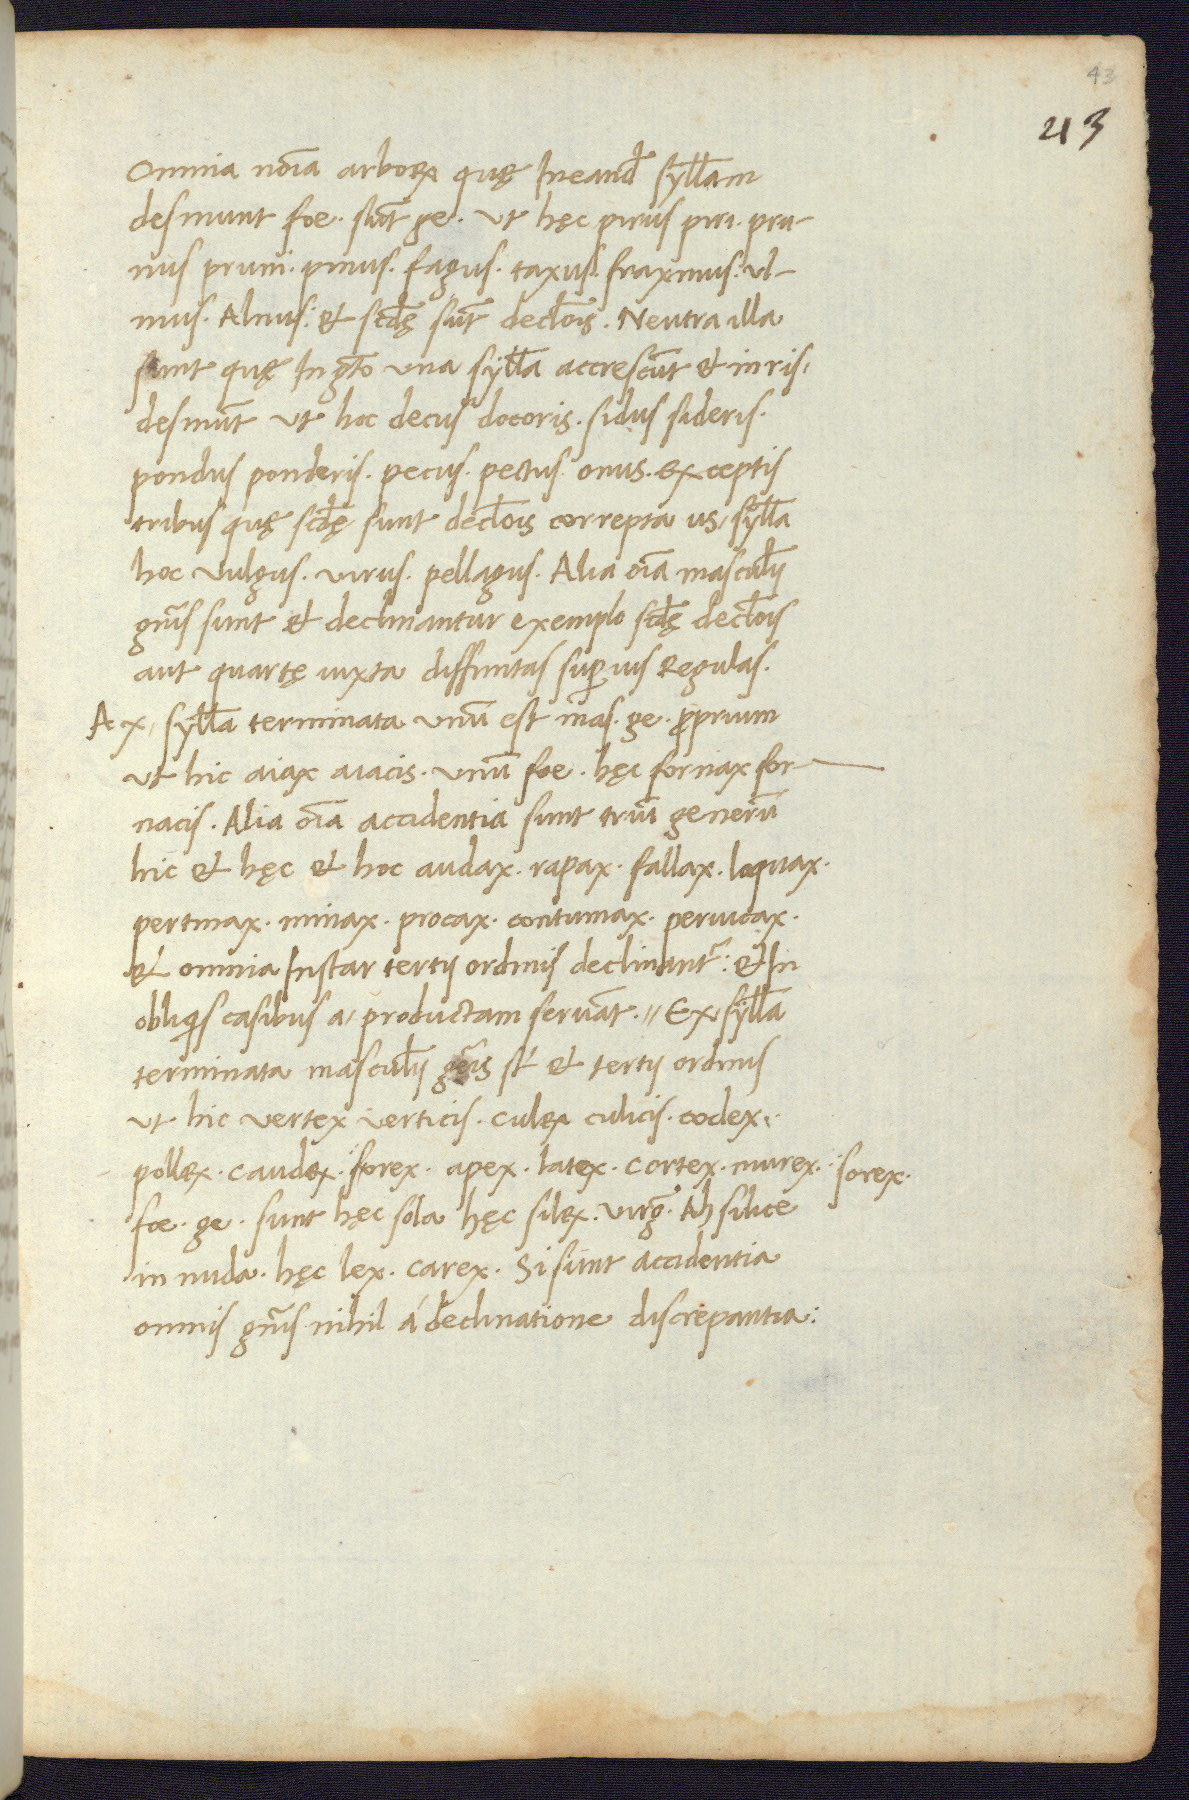 43
43
Omnia noīa arboꝝ quę In eand̄ syll̄am
desinunt foe. sūt ge. ut hęc pirus piri. pru-
nus pruni. pinus. fagus. taxus. fraxinus. ul-
mus. Alnus: & scd̄ę sūt decl̄ois. Neutra illa
sunt quę In gt̄o una syll̄a accrescūt & in ris,
desinūt ut hoc decus docoris. sidus sideris.
pondus ponderis. pecus. pectus. onus. Exceptis
tribus quę scd̄ę sunt decl̄ois correpta us, syll̄a
hoc vulgus. virus. pellagus. Alia oīa mascul̄ij
gn̄is sunt & declinantur exemplo scd̄ę decl̄ois
aut quartę iuxta diffinitas superius Regulas.
Ax, syll̄a terminata unū est mas. ge. ꝓprium
ut hic aiax aiacis. unū foe. hęc fornax for-
nacis. Alia oīa accidentia sunt triū generū
hic & hęc & hoc audax. rapax. fallax. loquax.
pertinax. minax. procax. contumax. peruicax.
& omnia Instar tertij ordinis declinant᷑: & In
obliquis casibus a, productam seruāt. // Ex syll̄a
terminata mascul̄ij gn̄is st̄ & tertij ordinis
ut hic vertex verticis. culex culicis. codex.
pollex. caudex. forex. apex. latex. cortex. murex. sorex.
foe. ge. sunt hęc sola hęc silex. virg. Ab silice
in nuda. hęc lex. carex. Si sunt accidentia
omnis gn̄is nihil á declinatione discrepantia: